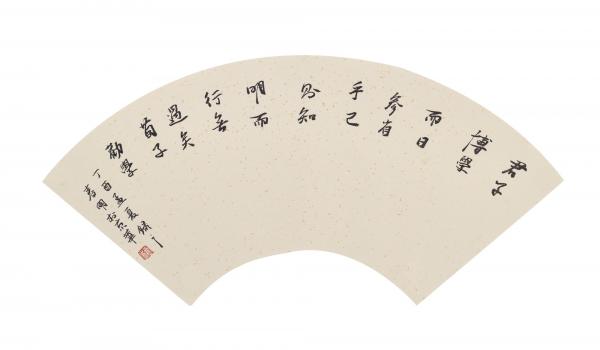 君子
博學
而日
參省
乎己
則知
明而
行無
過矣
荀子
勸學
丁酉孟夏
春國於京華